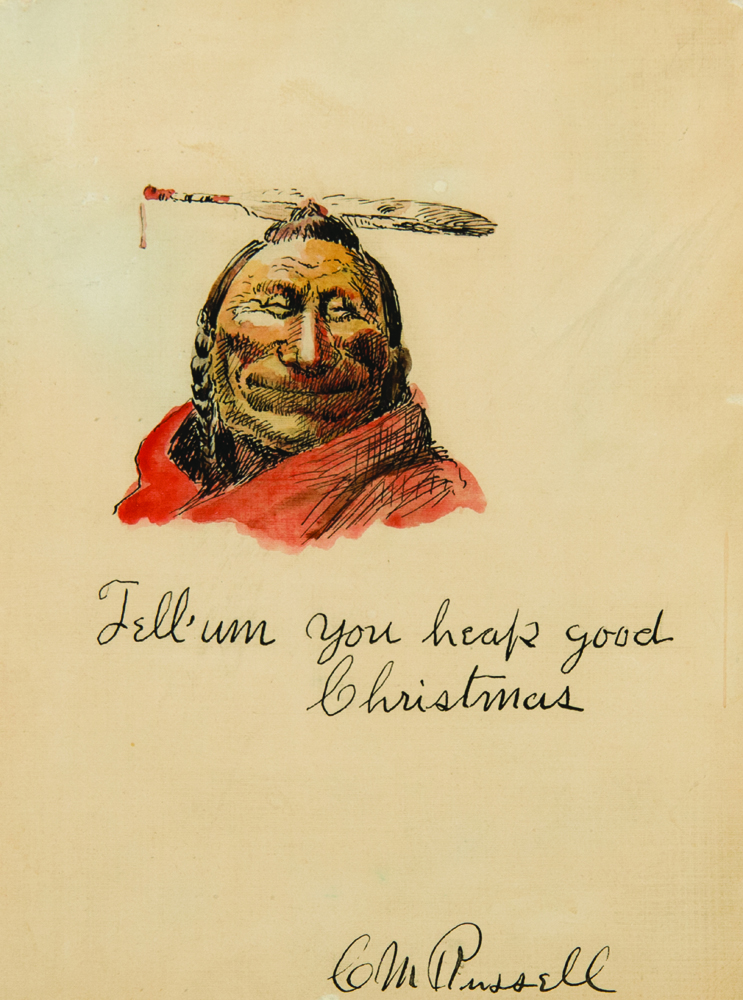 Tell'um you heap good
Christmas
CM Russell